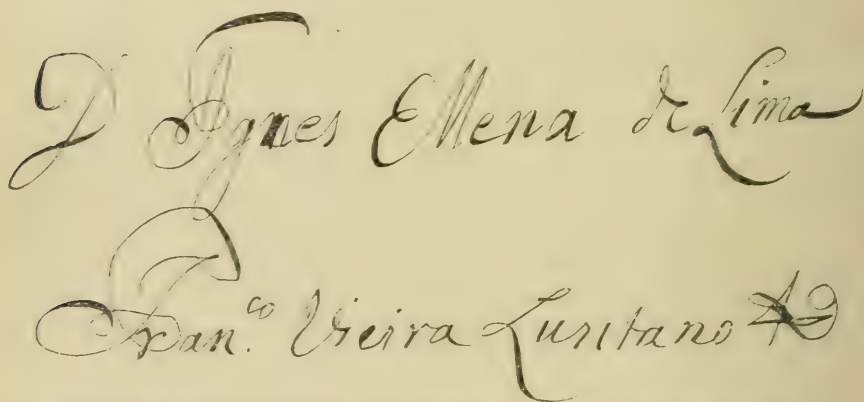 D Ignes Ellena de Lima
Fran.co Vieira Lusitano